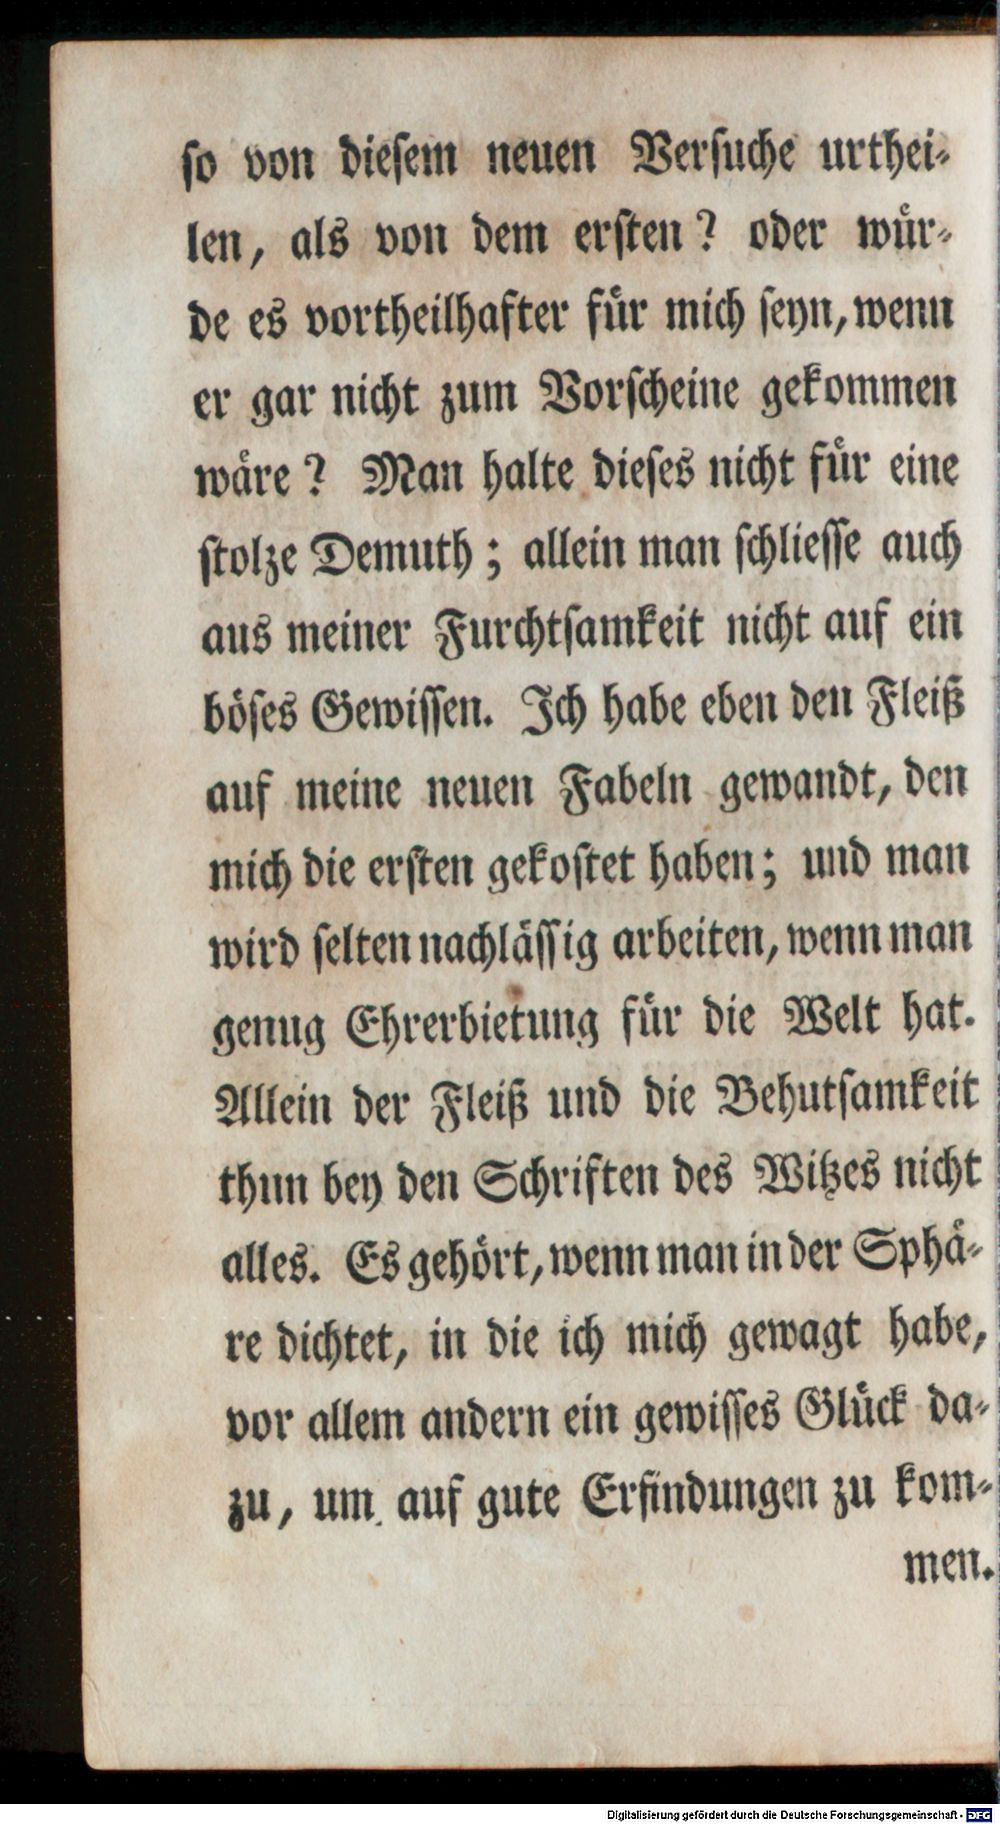 so von diesem neuen Versuche urthei-
len, als von dem ersten? oder wür-
de es vortheilhafter für mich seyn, wenn
er gar nicht zum Vorscheine gekommen
wäre? Man halte dieses nicht für eine
stolze Demuth; allein man schliesse auch
aus meiner Furchtsamkeit nicht auf ein
böses Gewissen. Ich habe eben den Fleiß
auf meine neuen Fabeln gewandt, den
mich die ersten gekostet haben; und man
wird selten nachlässig arbeiten, wenn man
genug Ehrerbietung für die Welt hat.
Allein der Fleiß und die Behutsamkeit
thun bey den Schriften des Witzes nicht
alles. Es gehört, wenn man in der Sphä-
re dichtet, in die ich mich gewagt habe,
vor allem andern ein gewisses Glück da-
zu, um auf gute Erfindungen zu kom-
men.
Digitalisierung gefördert durch die Deutsche Forschungsgemeinschaft - DFG